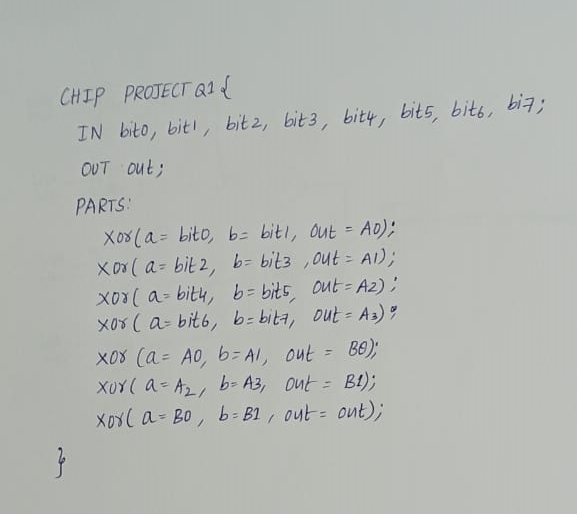 CHIP PROJECT Q1 {
IN bit0, bit1, bit2, bit3, bit4, bit5, bit6, bi7;
OUT out;
PARTS:
Xor(a= bit0, b= bit1, out = A0);
Xor(a= bit2, b= bit3, out = A1);
Xor(a= bit4, b= bit5, out = A2);
Xor(a= bit6, b= bit7, out = A3);
Xor (a= A0, b= A1, out = B0);
Xor(a= A2, b= A3, out = B1);
Xor(a= B0, b= B1, out= out);
}